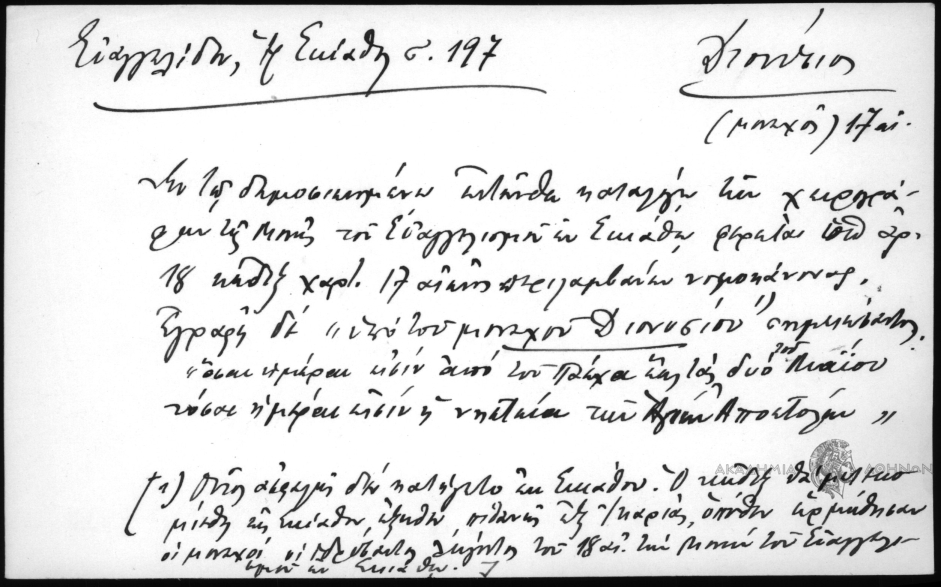 Εὐαγγελίδου, Ἡ Σκίαθος σ. 197
Διονύσιος
(μοναχός) 17 αἰ.
Ἐν τῷ δημοσιευομένῳ ἐνταῦθα καταλόγῳ τῶν χειρογρά-
φων τῆς Μονῆς τοῦ Εὐαγγελισμοῦ ἐν Σκιάθῳ φέρεται ὑπ' ἀρ.
18 κῶδιξ χαρτ. 17 αἰῶνος περιλαμβάνων νομοκάνονας.
Ἐγράφη δὲ „ὑπὸ τοῦ μοναχοῦ Διονυσίου¹⁾ σημειώσαντος
"ὅσαι ἡμέραι εἰσὶν ἀπὸ τοῦ Πάσχα ἕως τὰς δύο τοῦ Μαΐου
τόσαι ἡμέραι εἰσὶν ἡ νηστεία τῶν Ἁγίων Ἀποστόλων „
(1) Οὗτος ἀσφαλῶς δὲν κατήγετο ἐκ Σκιάθου. Ὁ κῶδιξ θὰ μετεκο
μίσθη εἰς Σκίαθον, ἔξωθεν, πιθανῶς ἐξ Ἰκαρίας, ὁπόθεν ὡρμήθησαν
οἱ μοναχοί, οἱ ἱδρύσαντες λήγοντος τοῦ 18 αἰ. τὴν Μονὴν τοῦ Εὐαγγελι-
σμοῦ ἐν Σκιάθῳ.
ΑΚΑΔΗΜΙΑ ΑΘΗΝΩΝ